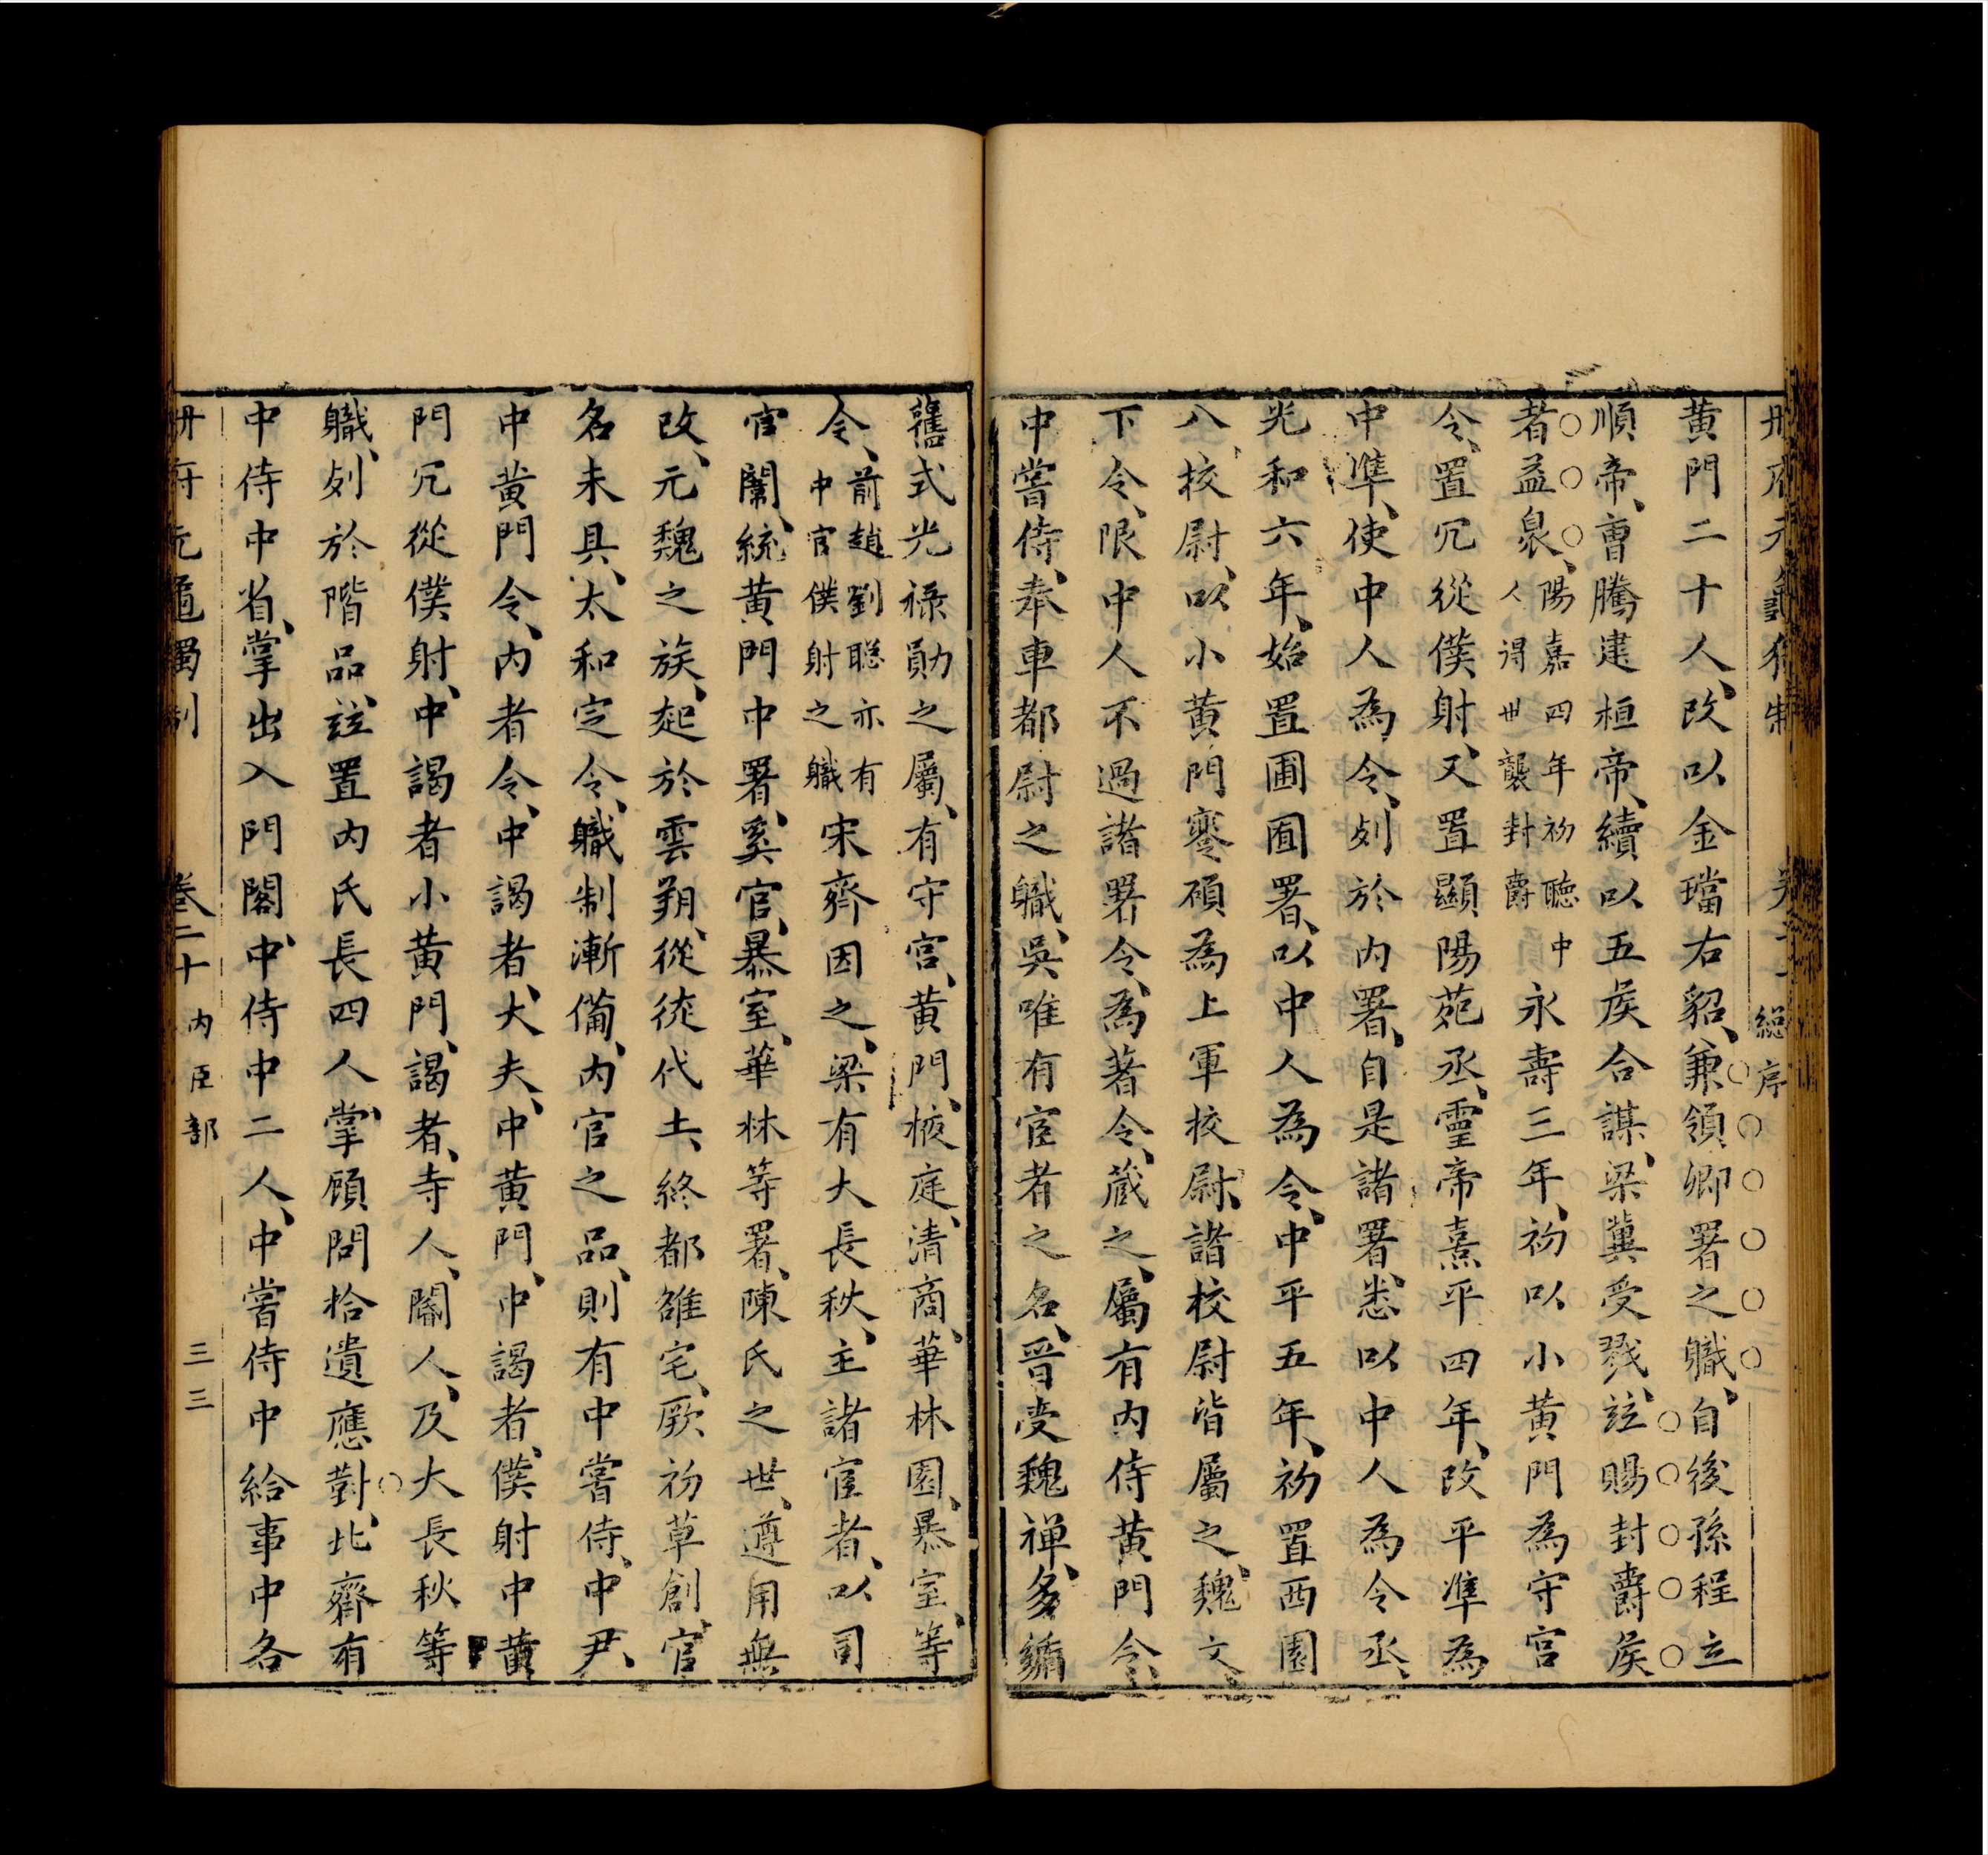 總序
黃門二十人、改以金璫右貂、兼領卿署之職、自後孫程立
順帝、曺騰建桓帝、續以五矦合謀、梁冀受戮、竝賜封爵矦
者益衆、陽嘉四年初聽中人得世襲封爵永壽三年、初以小黃門為守宮
令、置冗從僕射、又置顯陽苑丞、靈帝熹平四年、改平凖為
中凖、使中人為令、列於內署、自是諸署、悉以中人為令丞、
光和六年、始置圃囿署、以中人為令、中平五年、初置西園
八校尉、以小黃門蹇碩為上軍校尉、諸校尉皆屬之、魏文
下令、限中人不過諸署令、為著令、藏之、屬有內侍黃門令、
中嘗侍、奉車都尉之職、吳唯有宦者之名、晉受魏禪、多循
舊式光祿勛之屬、有守宮、黃門、掖庭、清商、華林園、暴室、等
令、前趙劉聰亦有中官僕射之職宋齊因之、梁有大長秋、主諸宦者、以司
官闈、統黃門中署、奚官、暴室、華林等署、陳氏之世、遵用無
改、元魏之族、起於雲朔、從徙代土、終都雒宅、厥初草創、官
名未具、太和定令、職制漸備、內官之品、則有中嘗侍、中尹、
中黃門令、內者令、中謁者、大夫、中黃門、中謁者、僕射中黃
門冗從僕射、中謁者小黃門、謁者、寺人、閹人、及大長秋等
職、列於階品、竝置內氏長四人、掌顧問拾遺應對、北齊有
中侍中省、掌出入門閤、中侍中二人、中嘗侍中給事中各
冊府元龜獨制 卷二十 內臣部 三三